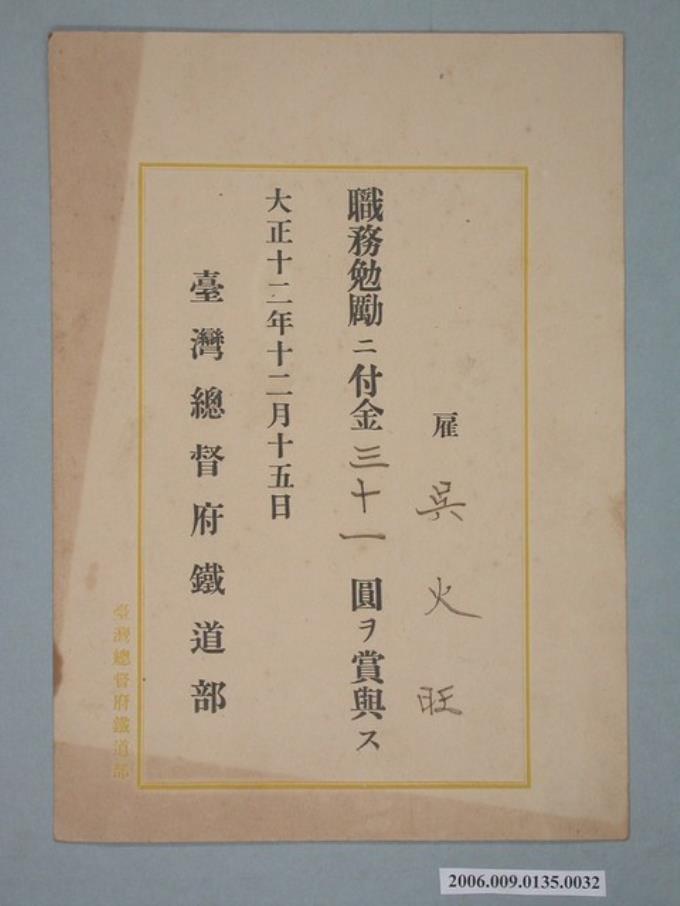 雇 吳火旺
職務勉勵ニ付金三十一圓ヲ賞與ス
大正十二年十二月十五日
臺灣總督府鐵道部
臺灣總督府鐵道部
2006.009.0135.0032